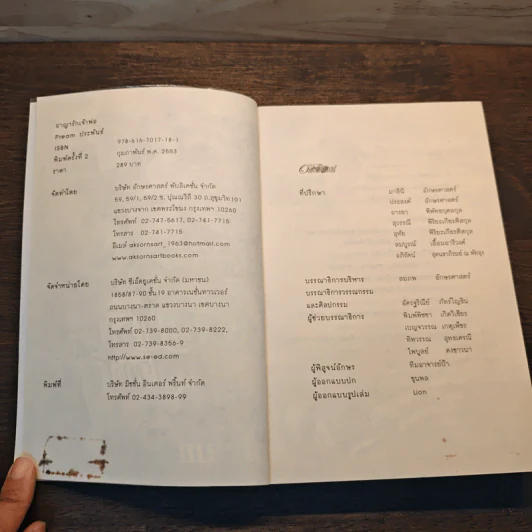 อาญารักเจ้าพ่อ
Pream ประพันธ์
ISBN 978-616-7017-18-1
พิมพ์ครั้งที่ 2 กุมภาพันธ์ พ.ศ. 2553
ราคา 289 บาท
จัดทำโดย บริษัท อักษรศาสตร์ พับลิเคชั่น จำกัด
59, 59/1, 59/2 ซ. ปุณณวิถี 30 ถ.สุขุมวิท 101
แขวงบางจาก เขตพระโขนง กรุงเทพฯ 10260
โทรศัพท์ 02-747-5617, 02-741-7715
โทรสาร 02-741-7715
อีเมล์ aksornsart_1963@hotmail.com
www.aksornsartbooks.com
จัดจำหน่ายโดย บริษัท ซีเอ็ดยูเคชั่น จำกัด (มหาชน)
1858/87-90 ชั้น 19 อาคารเนชั่นทาวเวอร์
ถนนบางนา-ตราด แขวงบางนา เขตบางนา
กรุงเทพฯ 10260
โทรศัพท์ 02-739-8000, 02-739-8222,
โทรสาร 02-739-8356-9
http://www.se-ed.com
พิมพ์ที่ บริษัท มีชชั่น อินเตอร์ พริ้นท์ จำกัด
โทรศัพท์ 02-434-3898-99
ที่ปรึกษา มาธินี อักษรศาสตร์
ประสงค์ อักษรศาสตร์
อารยา
สุวรรณี
อุทัย
สมบูรณ์ เอื้ออารีวงศ์
อภิรัตน์
บรรณาธิการบริหาร สมภพ อักษรศาสตร์
บรรณาธิการวรรณกรรม
และศิลปกรรม ฉัตรฐิณีย์ ภัทร์ไญริน
ผู้ช่วยบรรณาธิการ พิมพ์พิชชา เกิดวิเชียร
เบญจวรรณ เกตุเพียร
ทิพวรรณ
ไพบูลย์ คงชาวนา
ผู้พิสูจน์อักษร ทีมอาจารย์ป้า
ผู้ออกแบบปก ขุนพล
ผู้ออกแบบรูปเล่ม Lion